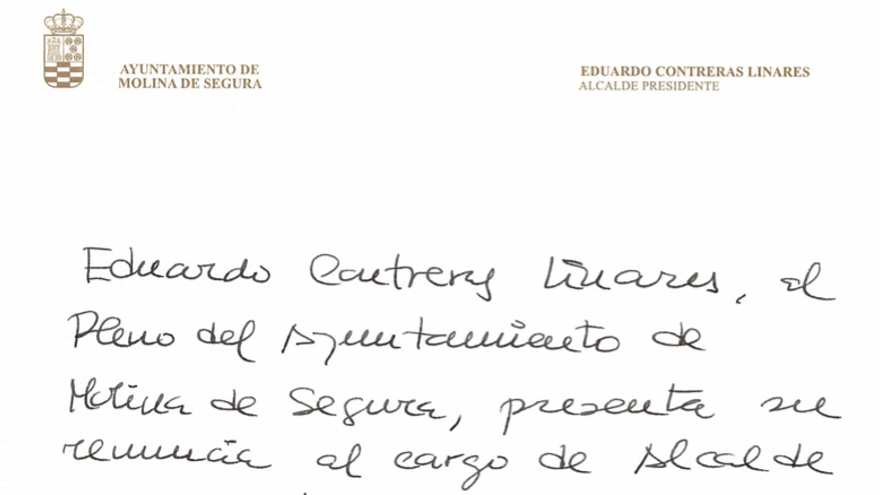 AYUNTAMIENTO DE
MOLINA DE SEGURA
EDUARDO CONTRERAS LINARES
ALCALDE PRESIDENTE
Eduardo Contreras Linares, al
Pleno del Ayuntamiento de
Molina de Segura, presenta su
renuncia al cargo de Alcalde